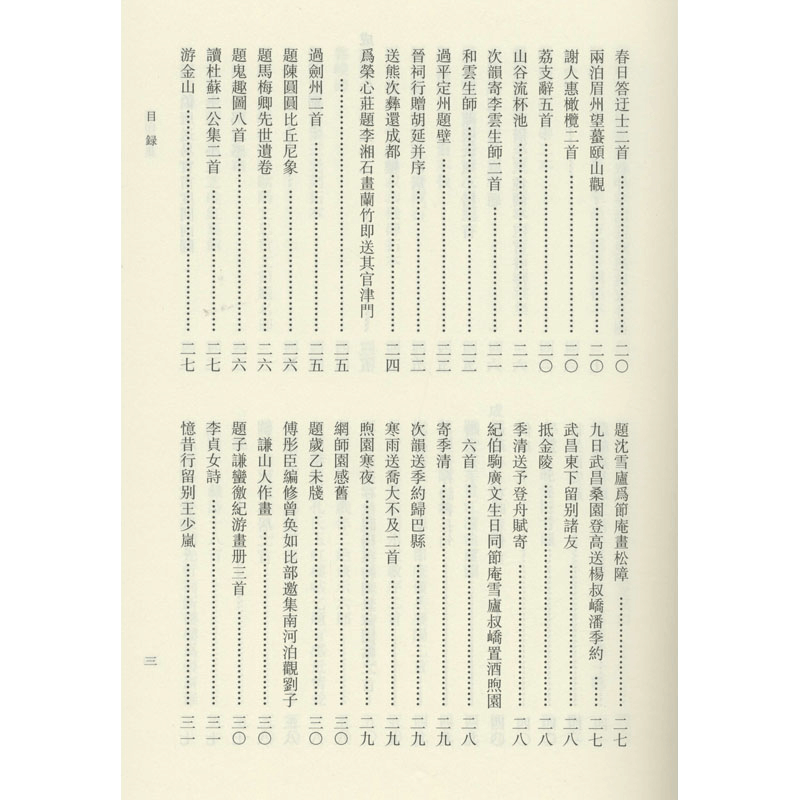 春日答迂士二首……二〇
兩泊眉州望蟇頤山觀……二〇
謝人惠橄欖二首……二〇
荔支辭五首……二〇
山谷流杯池……二一
次韻寄李雲生師二首……二一
和雲生師……二二
過平定州題壁……二二
晉祠行贈胡延并序……二二
送熊次彝還成都……二四
爲榮心莊題李湘石畫蘭竹即送其官津門
……二五
過劍州二首……二五
題陳圓圓比丘尼象……二六
題馬梅卿先世遺卷……二六
題鬼趣圖八首……二六
讀杜蘇二公集二首……二七
游金山……二七
題沈雪廬爲節庵畫松障……二七
九日武昌桑園登高送楊叔嶠潘季約……二七
武昌東下留別諸友……二八
抵金陵……二八
季清送予登舟賦寄……二八
紀伯駒廣文生日同節庵雪廬叔嶠置酒煦園
六首……二八
寄季清……二九
次韻送季約歸巴縣……二九
寒雨送喬大不及二首……二九
煦園寒夜……二九
網師園感舊……三〇
題歲乙未牋……三〇
傅彤臣編修曾奐如比部邀集南河泊觀劉子
謙山人作畫……三〇
題子謙蠻徼紀游畫册三首……三〇
李貞女詩……三一
憶昔行留别王少嵐……三一
目録
三